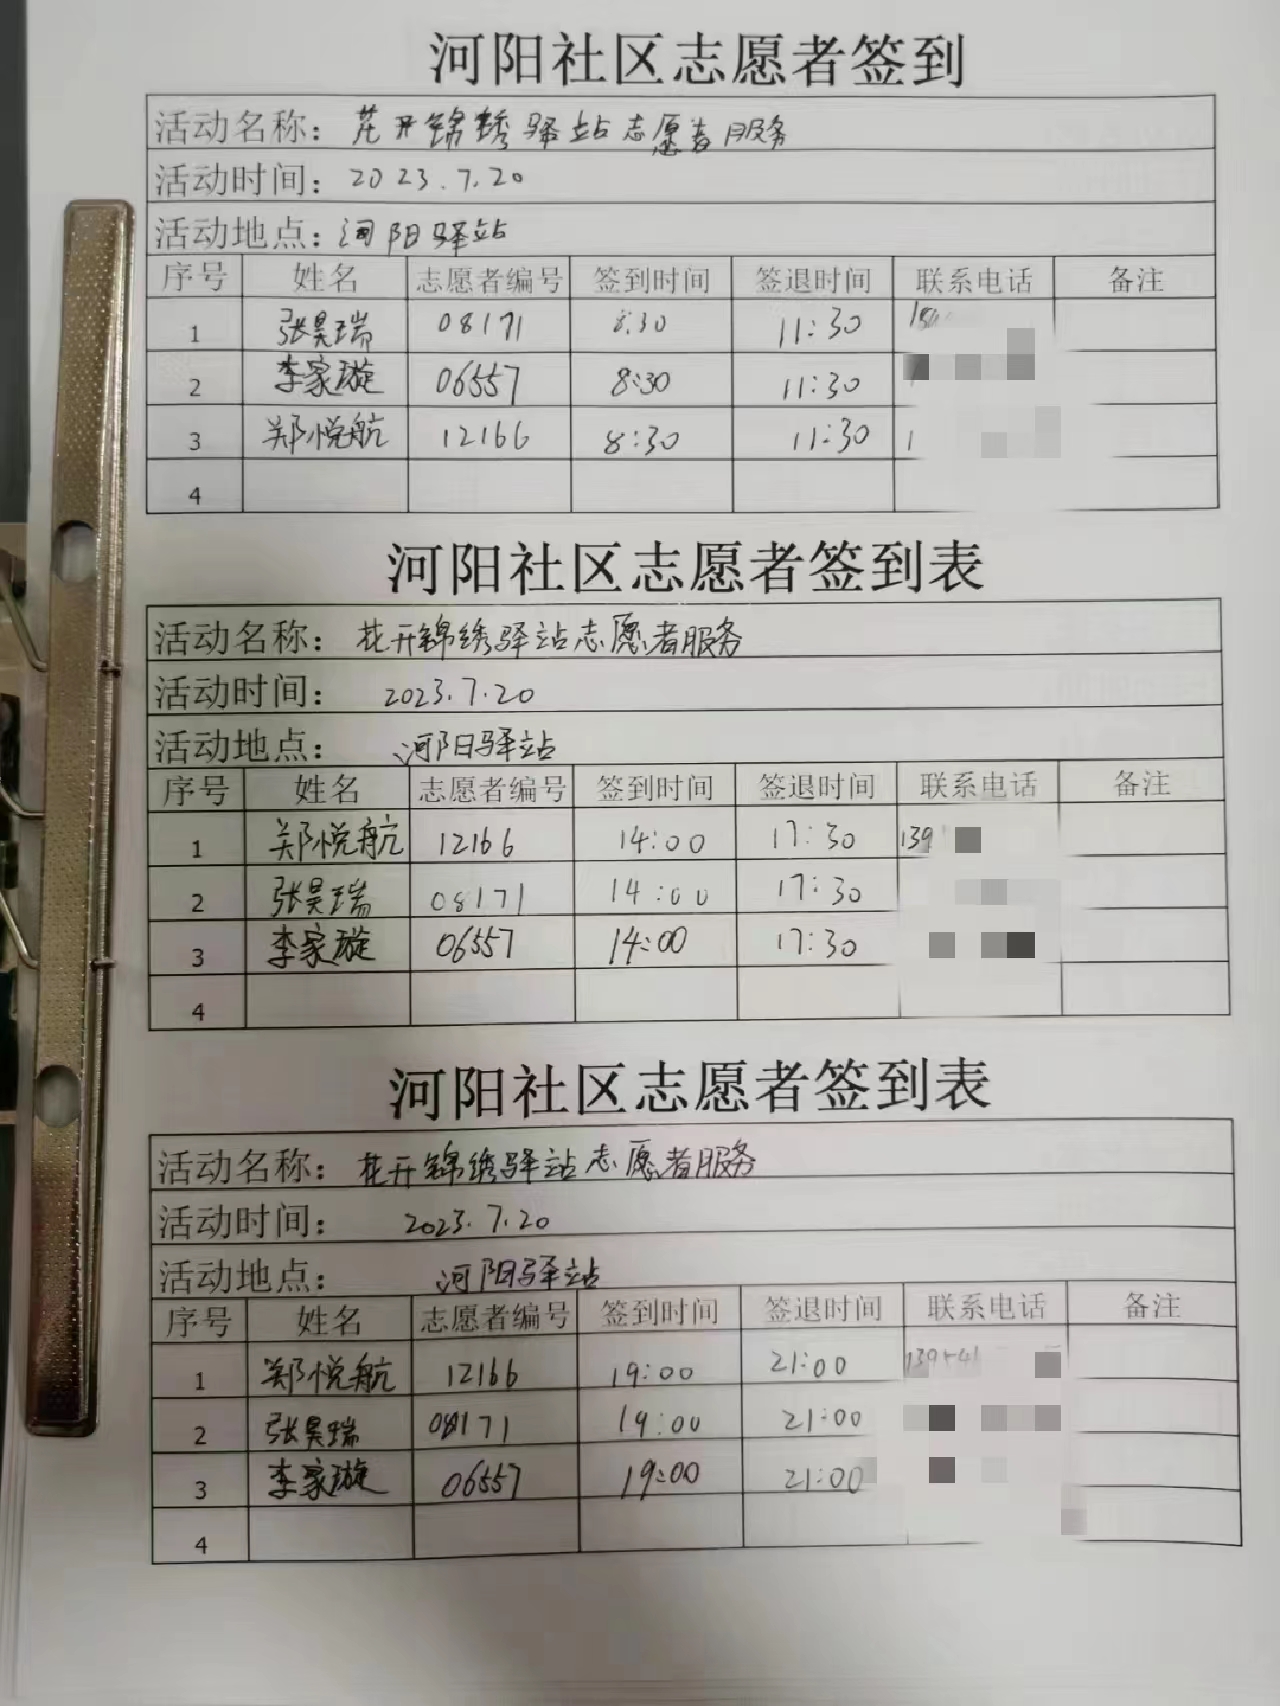 河阳社区志愿者签到
活动名称：花开锦绣驿站志愿者服务
活动时间：2023.7.20
活动地点：河阳驿站
序号 姓名 志愿者编号 签到时间 签退时间 联系电话 备注
1 张昊瑞 08171 8:30 11:30
2 李家璇 06557 8:30 11:30
3 郑悦航 12166 8:30 11:30 1
4
河阳社区志愿者签到表
活动名称：花开锦绣驿站志愿者服务
活动时间：2023.7.20
活动地点：河阳驿站
序号 姓名 志愿者编号 签到时间 签退时间 联系电话 备注
1 郑悦航 12166 14:00 17:30 139
2 张昊瑞 08171 14:00 17:30
3 李家璇 06557 14:00 17:30
4
河阳社区志愿者签到表
活动名称：花开锦绣驿站志愿者服务
活动时间：2023.7.20
活动地点：河阳驿站
序号 姓名 志愿者编号 签到时间 签退时间 联系电话 备注
1 郑悦航 12166 19:00 21:00
2 张昊瑞 08171 19:00 21:00
3 李家璇 06557 19:00 21:00
4